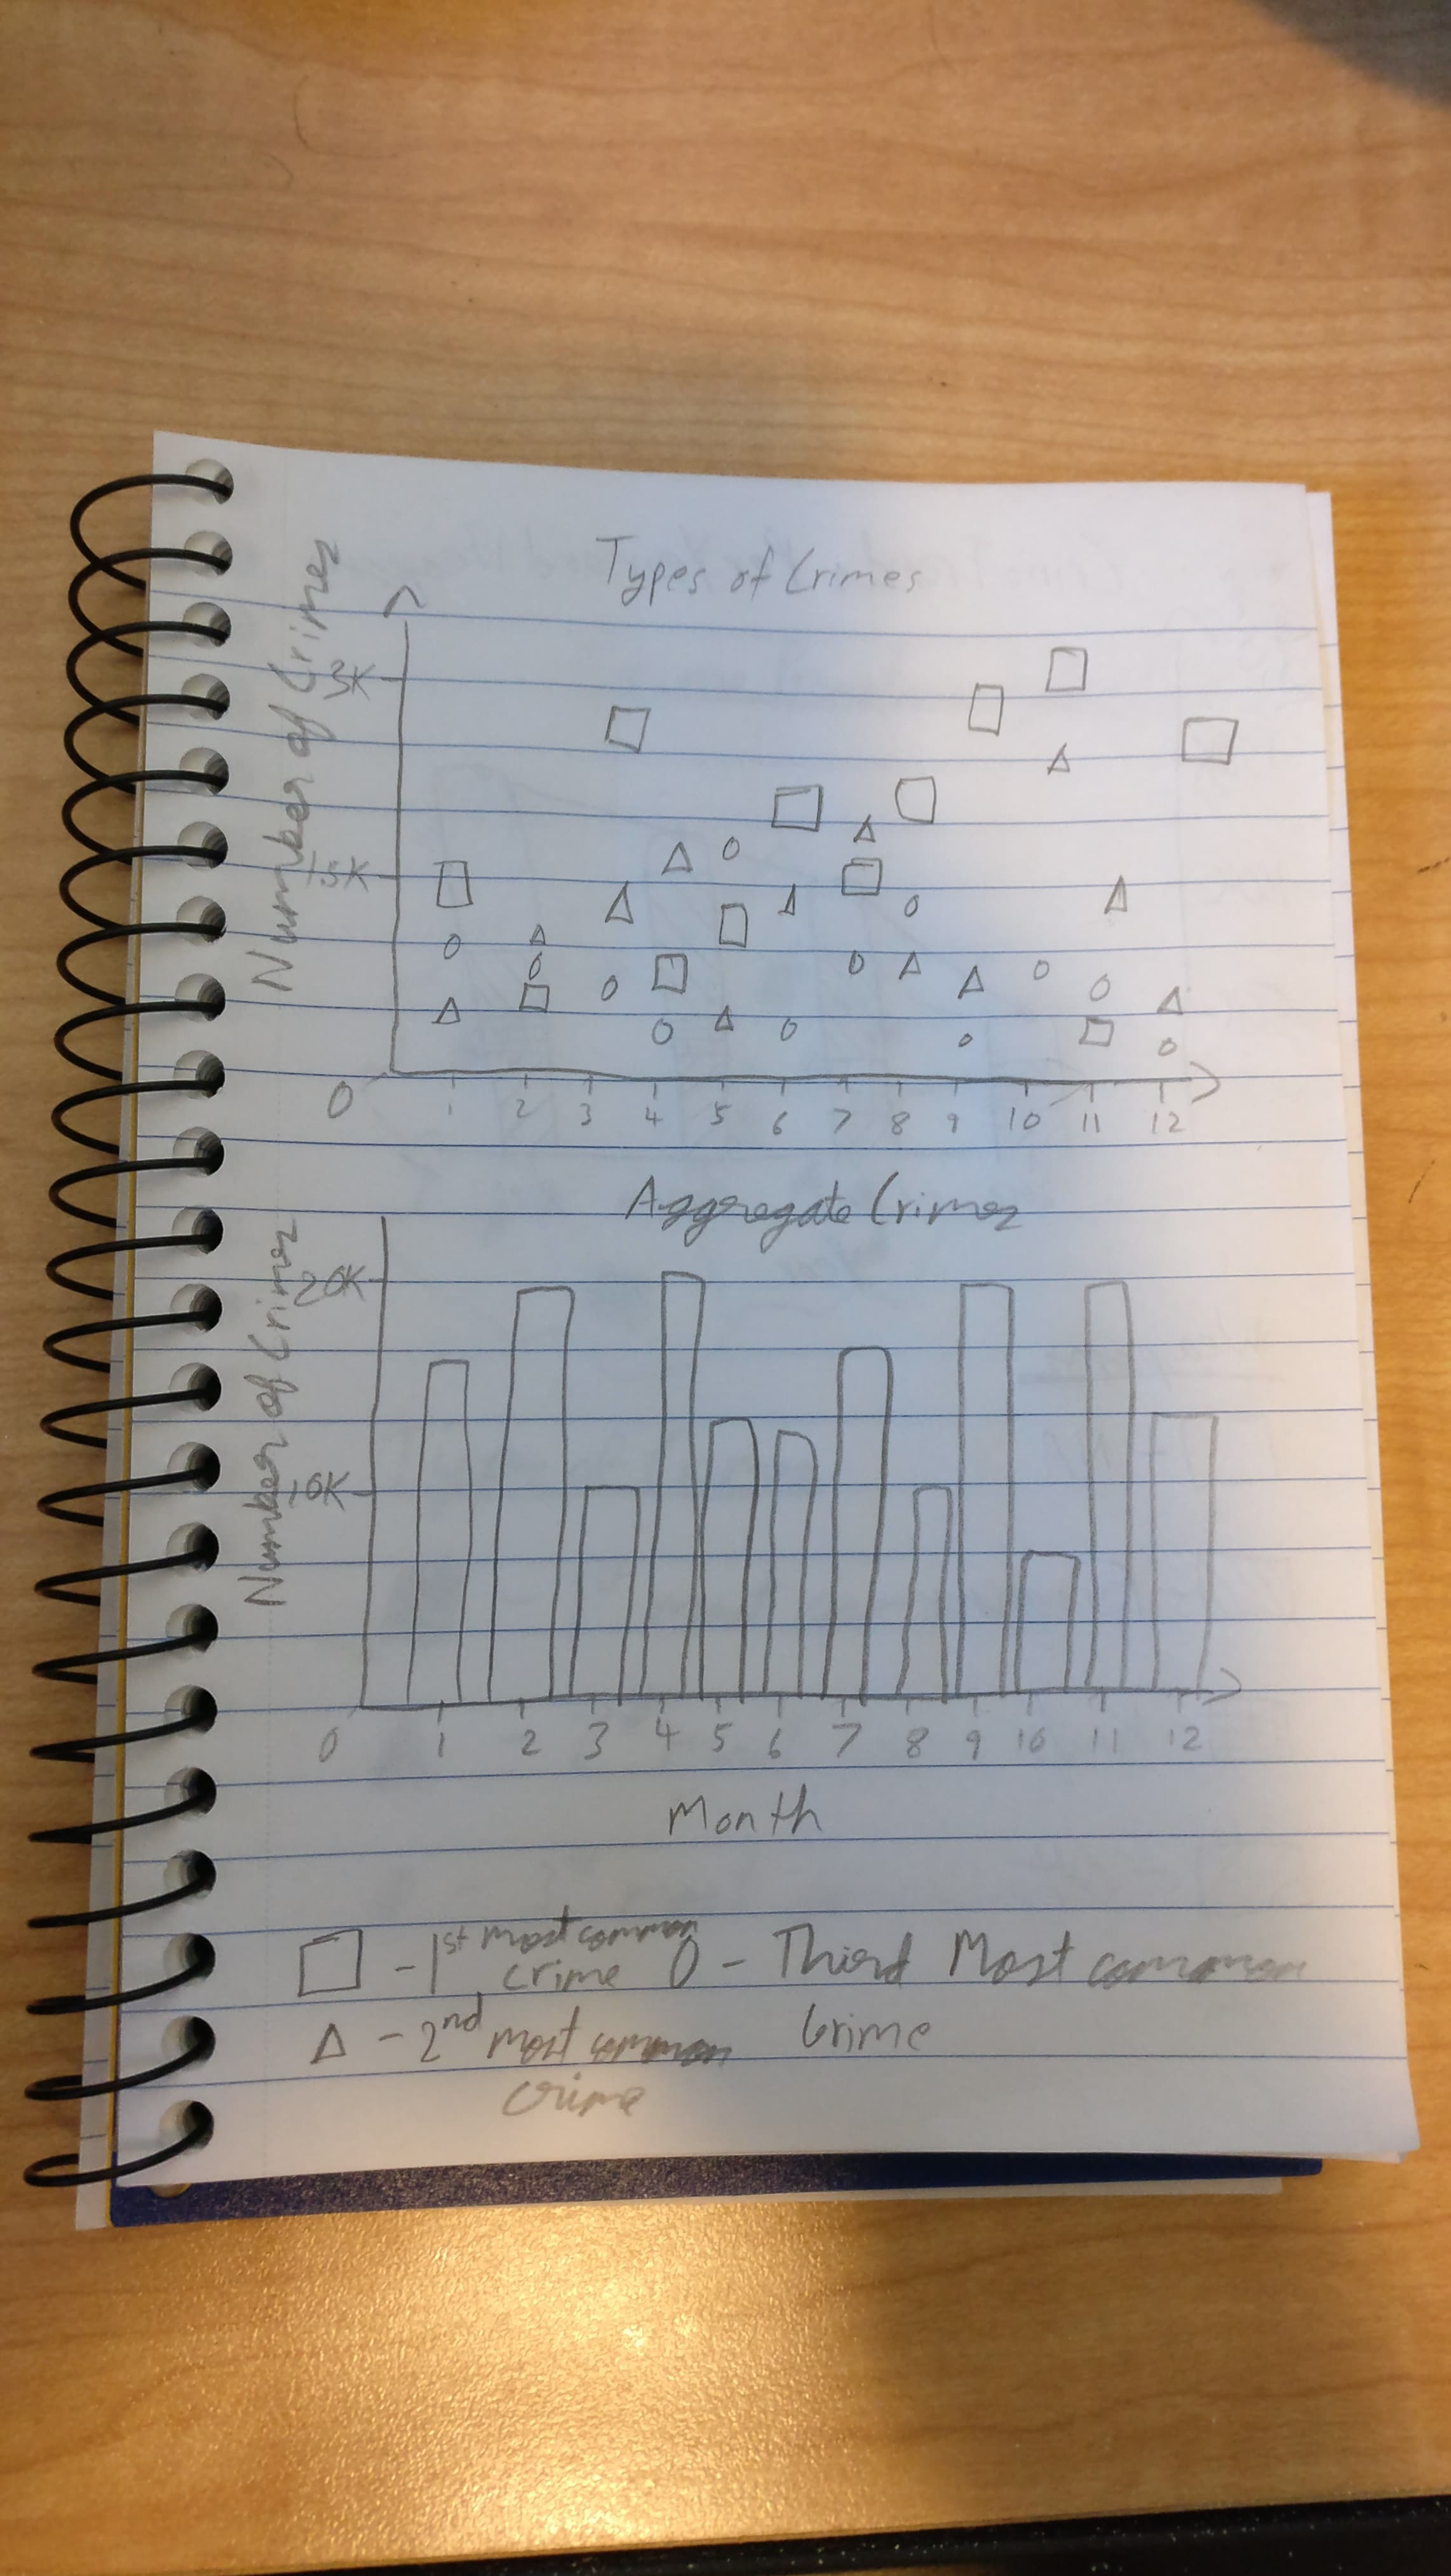 Types of Crimes
Number of Crimes
3K
1.5K
0 1 2 3 4 5 6 7 8 9 10 11 12
Aggregate Crimes
Number of Crimes
20K
10K
0 1 2 3 4 5 6 7 8 9 10 11 12
Month
□ - 1st most common crime
Δ - 2nd most common crime
O - Third Most common Crime